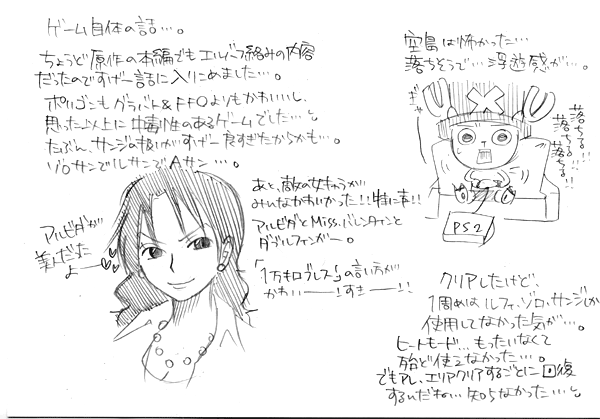 ゲーム自体の話…。
ちょうど原作の本編でもエルバフ絡みの内容
だったのですげー話に入りこめました…。
ポリゴンもグラバト&FFOよりもかわいいし、
思った以上に中毒性のあるゲームでした…。
たぶん、サンジの扱いがすげー良すぎたからかも…。
ゾロサンでルサンでAサン…。
アルビダが
美人だった
よー
あと、敵の女キャラが
みんなかわいかった!!特に!!
アルビダとMiss.バレンタインと
ダブルフィンガー。
「1万キロプレス」の言い方が
かわいーー!すきーー!!
空島は怖かった…
落ちそうで…浮遊感が…。
落ちる!
落ちる!!
落ちる!!
PS2
クリアしたけど、
1周めはルフィ、ゾロ、サンジしか
使用してなかった気が…。
ヒートモード…もったいなくて
殆ど使えなかった…。
でもアレ、エリアクリアするごとに回復
するんだね…知らなかった…